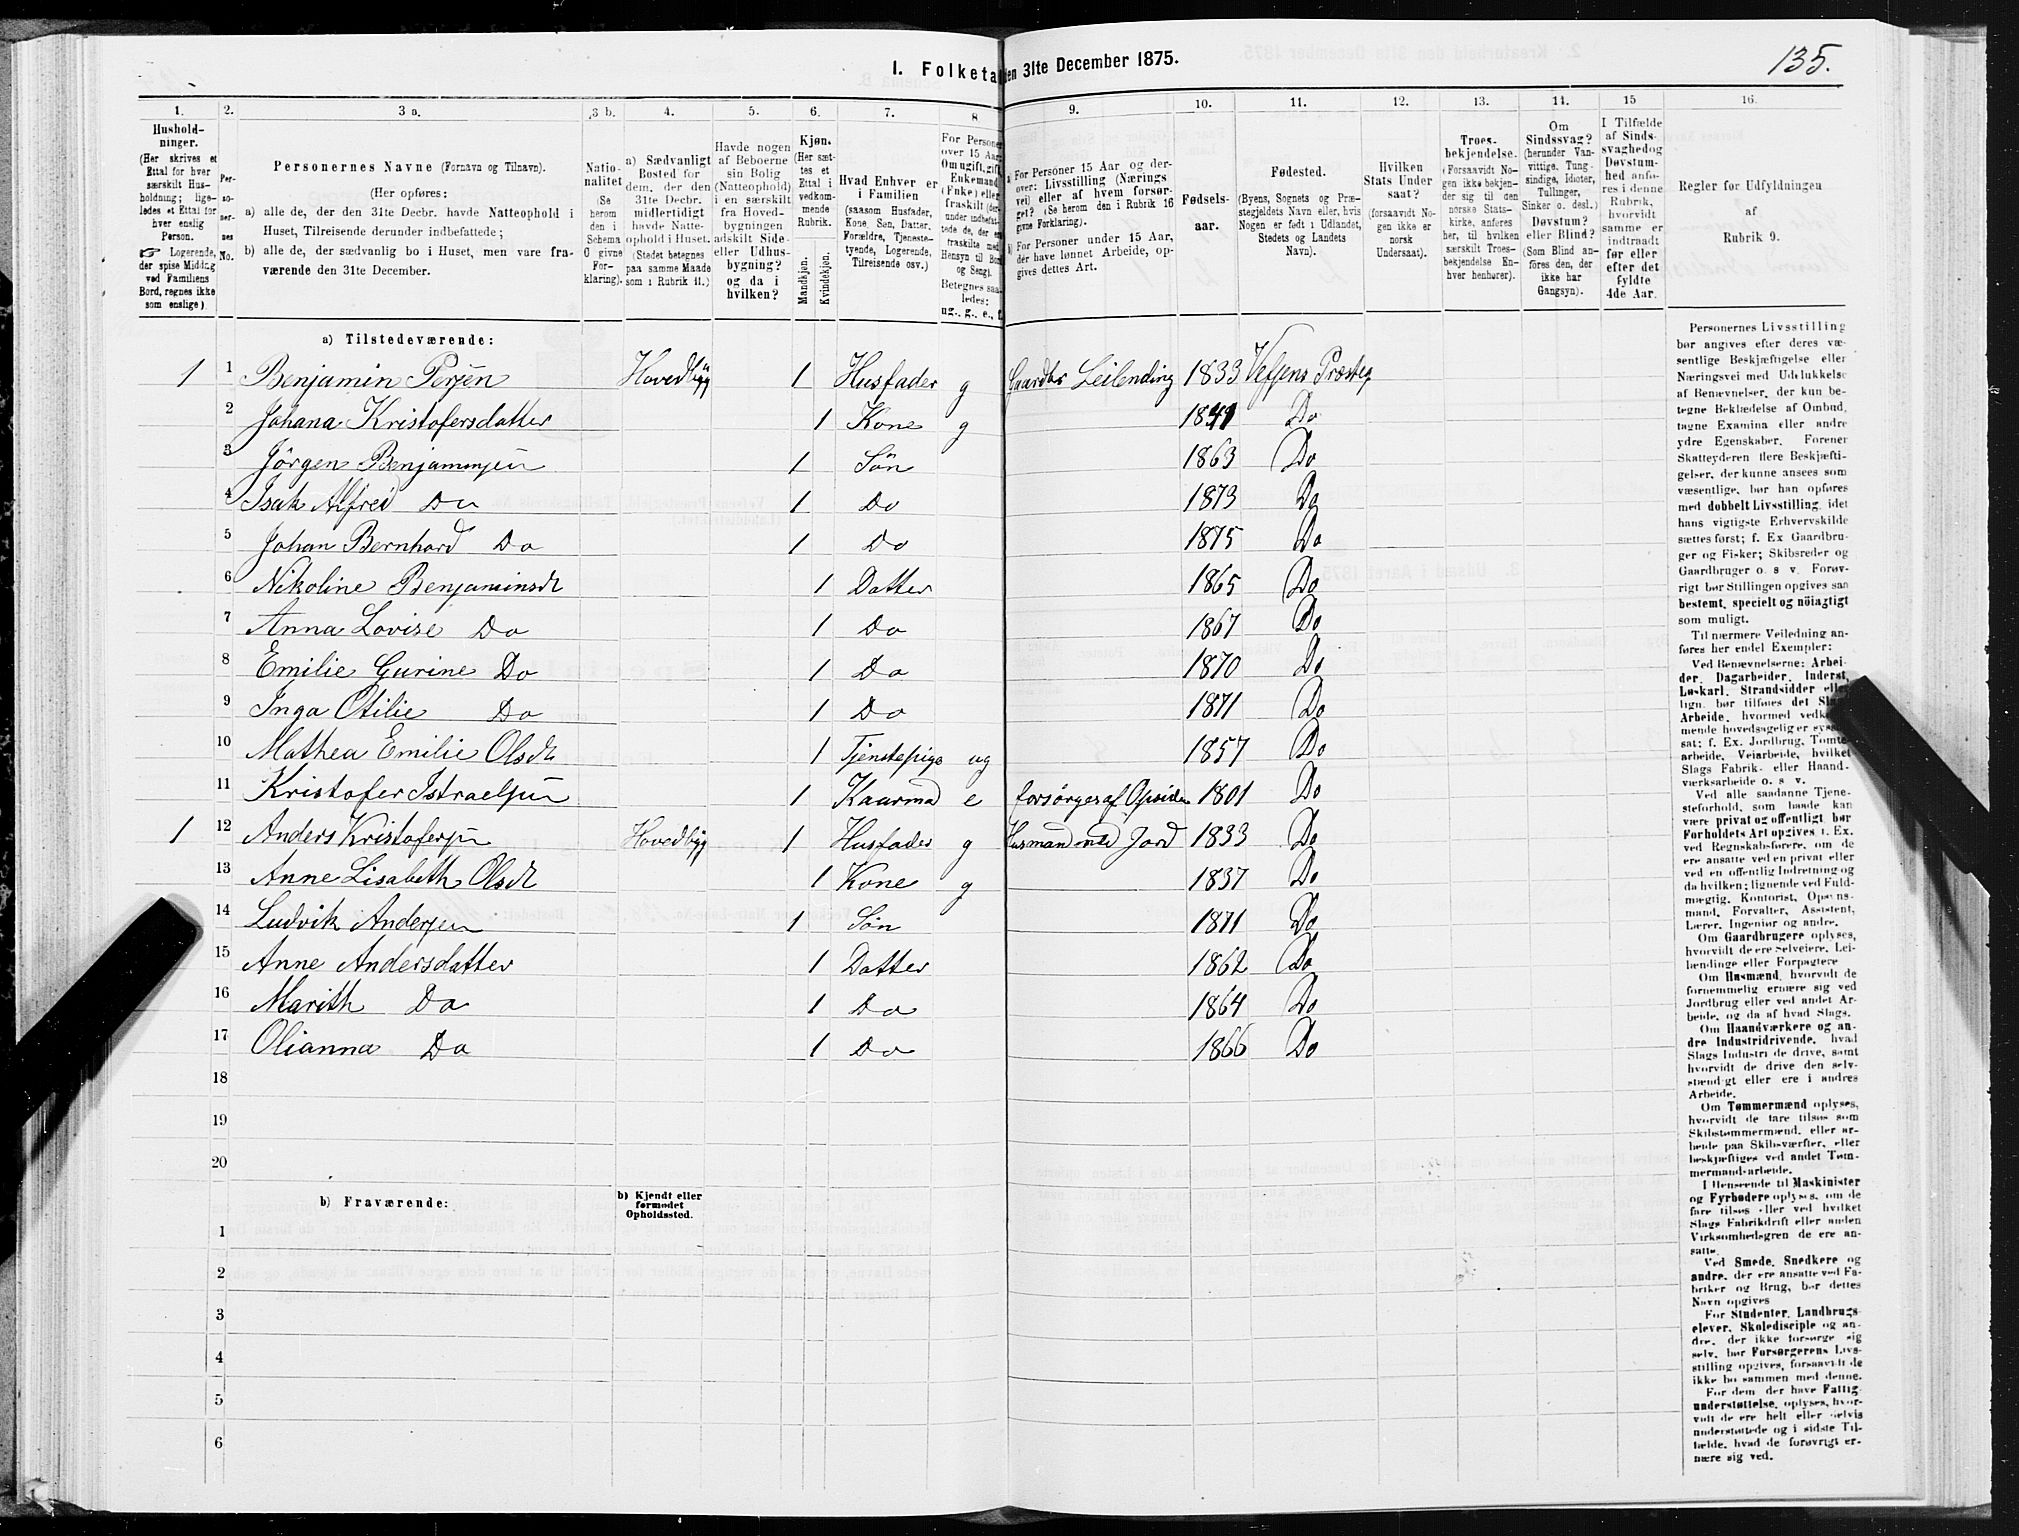 135.
I. Folketa en 31te December 1875.
1. 2. 3 a. 3 b. 4. 5. 6. 7. 8 9. 10. 11. 12. 13. 14. 15 16.
Hushold-
ninger.
(Her skrives et
Ettal for hver
særskilt Hus-
holdning; lige-
ledes et Ettal for
hver enslig
Person.
☞ Logerende,
der spise Middag
ved Familiens
Bord, regnes ikke
som enslige).
Per-
so-
ner-
nes
No.
Personernes Navne (Fornavn og Tilnavn).
(Her opføres:
a) alle de, der den 31te Decbr. havde Natteophold i
Huset, Tilreisende derunder indbefattede;
b) alle de, der sædvanlig bo i Huset, men vare fra-
værende den 31te December.
Natio-
nalitet
(Se
herom
den i
Schema
O givne
For-
klaring).
a) Sædvanligt
Bosted for
dem, der den
31te Decbr.
midlertidigt
havde Natte-
ophold i Huset.
(Stedet betegnes
paa samme Maade
som i Rubrik 11.)
Havde nogen
af Beboerne
sin Bolig
(Natteophold)
i en særskilt
fra Hoved-
bygningen
adskilt Side-
eller Udhus-
bygning?
og da i
hvilken?
Kjøn.
(Her sæt-
tes et
Ettal i
vedkom-
mende
Rubrik.
Mandkjøn.
Kvindekjøn.
Hvad Enhver er
i Familien
(saasom Husfader,
Kone, Søn, Datter,
Forældre, Tjeneste-
tyende, Logerende,
Tilreisende osv.)
For Persone
over 15 Aar
Om ugift, gift
Enkemand
(Enke) eller
fraskilt (der-
under indbefat-
tede de, der er
fraskilte med
Hensyn til Bo
og Seng).
Betegnes saa-
ledes:
ug., g., e., f.
a) For Personer 15 Aar og der-
over: Livsstilling (Nærings
vei) eller af hvem forsør-
get? (Se herom den i Rubrik 16
givne Forklaring).
b) For Personer under 15 Aar,
der have lønnet Arbeide, op-
gives dettes Art.
Fødsels-
aar.
Fødested.
(Byens, Sognets og Præ-
stegjeldets Navn eller, hvis
Nogen er født i Udlandet,
Stedets og Landets
Navn).
Hvilken
Stats Under
saat?
(forsaavidt No-
gen ikke er
norsk
Undersaat).
Troes-
bekjendelse.
(Forsaavidt No-
gen ikke bekjen-
der sig til den
norske Stats-
kirke, anføres
her, til hvilken
særskilt Troes-
bekjendelse En-
hver henhører).
Om
Sindssvag?
(herunder Van-
vittige, Tung-
sindige, Idioter,
Tullinger,
Sinker o. desl.)
Døvstum?
eller Blind?
(Som Blind an-
føres den, der
ikke har
Gangsyn).
I Tilfælde
af Sinds-
svaghed og
Døvstum-
hed anfø-
res i denne
Rubrik,
hvorvidt
samme er
indtraadt
før eller
efter det
fyldte
4de Aar.
Regler for Udfyldningen
af
Rubrik 9.
a) Tilstedeværende:
1 1 Benjamin Persen Hovedbygg 1 Husfader g Gaardbr Leilending 1833 Vefsens Præsteg
2 Johana Kristofersdatter 1 Kone g 1841 Do
3 Jörgen Benjaminsen 1 Sön 1863 Do
4 Isak Alfred Do 1 Do 1873 Do
5 Johan Bernhard Do 1 Do 1875 Do
6 Nikoline Benjaminsdt 1 Datter 1865 Do
7 Anna Lovise Do 1 Do 1867 Do
8 Emilie Gurine Do 1 Do 1870 Do
9 Inga Otilie Do 1 Do 1871 Do
10 Mathea Emilie Olsdt 1 Tjenstepige ug 1857 Do
11 Kristofer Istraelsen 1 Kaarmd e forsörges af Opsider 1801 Do
1 12 Anders Kristofersen Hovedbygg 1 Husfader g Husmand med Jord 1833 Do
13 Anne Lisabeth Olsdt 1 Kone g 1837 Do
14 Ludvik Andersen 1 Sön 1871 Do
15 Anne Andersdatter 1 Datter 1862 Do
16 Marith Do 1 Do 1864 Do
17 Olianna Do 1 Do 1866 Do
18
19
20
b) Fraværende:
b) Kjendt eller
formodet
Opholdssted.
1
2
3
4
5
6
Personernes Livsstilling
bør angives efter deres væ-
sentlige Beskjæftigelse eller
Næringsvei med Udelukkelse
af Benævnelser, der kun be-
tegne Beklædelse af Ombud,
tagne Examina eller andre
ydre Egenskaber. Forener
Skatteyderen flere Beskjæfti-
gelser, der kunne ansees som
væsentlige, bør han opføres
med dobbelt Livsstilling, idet
hans vigtigste Erhvervskilde
sættes først; f. Ex Gaardbru-
ger og Fisker; Skibsreder og
Gaardbruger o. s v. Forøv-
rigt bør Stillingen opgives saa
bestemt, specielt og nöiagtigt
som muligt.
Til nærmere Veiledning an-
føres her endel Exempler:
Ved Benævnelserne: Arbei-
der, Dagarbeider, Inderst,
Løskarl, Strandsidder elle
lign. bør tilføies det Sla
Arbeide, hvormed vedk
mende hovedsagelig er syss
sat; f. Ex. Jordbrug, Tømte
arbeide, Veiarbeide, hvilket
Slags Fabrik- eller Haand-
værksarbeide o. s. v.
Ved alle saadanne Tjene-
steforhold, som baade kan
være privat og offentligt, bør
Forholdets Art opgives, f. Ex.
ved Regnskabsførere, om de
ere ansatte ved en privat eller
ved en offentlig Indretning og
da hvilken; lignende ved Fuld-
mægtig, Kontorist, Opsyns-
mand, Forvalter, Assistent,
Lærer, Ingeniør og andre.
Om Gaardbrugere oplyses,
hvorvidt de ere Selveiere, Lei-
lændinge eller Forpagtere
Om Husmænd, hvorvidt de
fornemmelig ernære sig ved
Jordbrug eller ved andet Ar-
beide, og da af hvad Slags.
Om Haandværkere og an-
dre Industridrivende, hvad
Slags Industri de drive, samt
hvorvidt de drive den selv-
stændigt eller ere i andres
Arbeide.
Om Tømmermænd oplyses,
hvorvidt de fare tilsøs som
Skibstømmermænd, eller ar-
beide paa Skibsværfter, eller
beskjæftiges ved andet Tøm-
mermandsarbeide.
I Henseende til Maskinister
og Fyrbødere oplyses, om de
fare tilsøs eller ved hvilket
Slags Fabrikdrift eller anden
Virksomhedsgren de ere an-
satte.
Ved Smede, Snedkere og
andre, der ere ansatte ved Fa-
briker og Brug, bør dettes
Navn opgives
For Studenter, Landbrugs-
elever, Skoledisciple og an-
dre, der ikke forsørge sig
selv, bør Forsørgerens Livs-
stilling opgives, forsaavidt de
ikke bo sammen med denne.
For dem, der have Fattig-
understøttelse, oplyses, hvor-
vidt de ere helt eller delvis
understøttede og i sidste Til-
fælde, hvad de forøvrigt er-
nære sig ved.